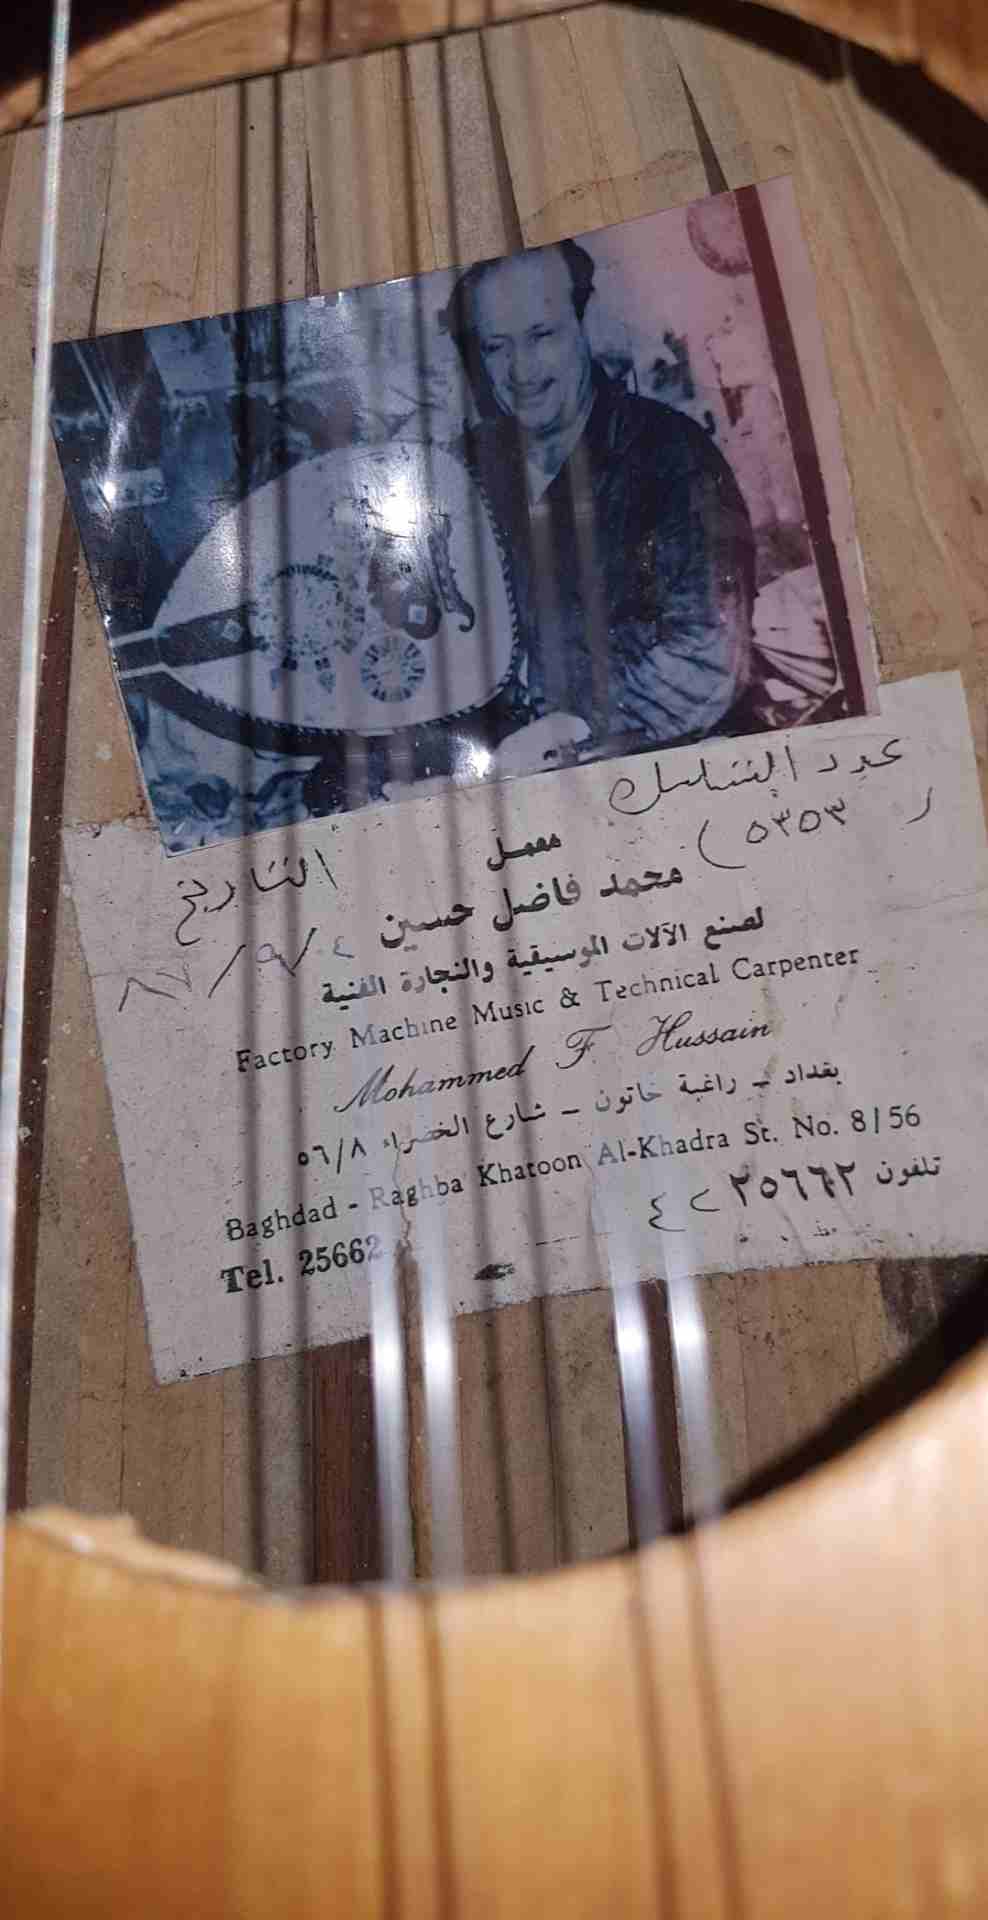 عدد التسلسل
( ٥٣٥٣ )
التاريخ
٨٧/٩/٤
معمل
محمد فاضل حسين
لصنع الآلات الموسيقية والنجارة الفنية
Factory Machine Music & Technical Carpenter
Mohammed F Hussain
بغداد - راغبة خاتون - شارع الخضراء ٥٦/٨
Baghdad - Raghba Khatoon Al-Khadra St. No. 8/56
تلفون ٢٥٦٦٢
Tel. 25662